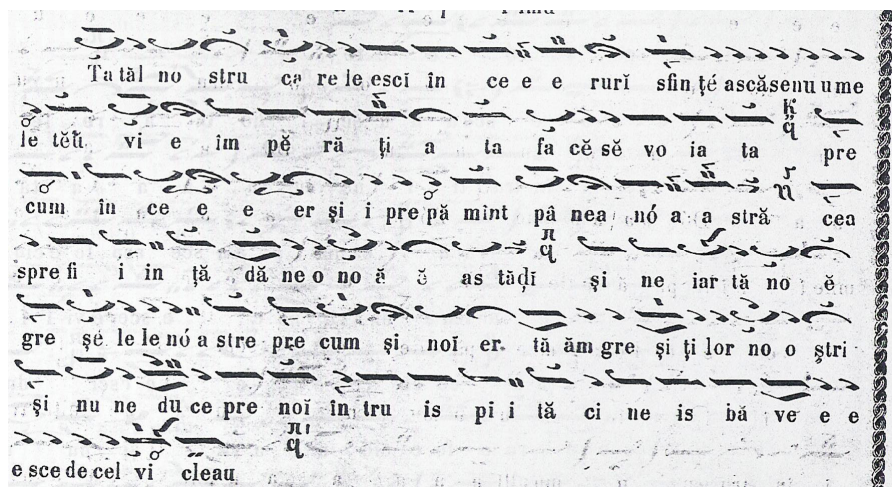 Ta tăl no stru ca re le esci în ce e e rurĭ sfin ţé ascăsenu u me
le tĕŭ vi e îm pĕ ră ţi a ta fa cĕ sĕ vo ia ta pre
cum în ce e e er şi i pre pă mint pâ nea nó a a stră cea
spre fi i in ţă dă ne o no ă ĕ as tăḑi şi ne iar tă no ĕ
gre şe le le nó a stre pre cum şi noĭ er tă ăm gre şi ţi lor no o ştri
şi nu ne du ce pre noĭ în tru is pi i tă ci ne is bă ve e e
e sce de cel vi cleau